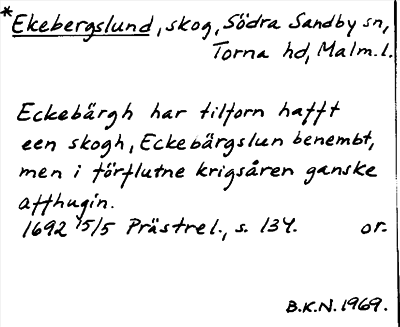 *Ekebergslund, skog, Södra Sandby sn,
Torna hd, Malm. l.
Eckebärgh har tilforn hafft
een skogh, Eckebärgslun benembt,
men i förflutne krigsåren ganske
affhugin.
1692 15/5 Prästrel., s. 134. or.
B.K.N. 1969.